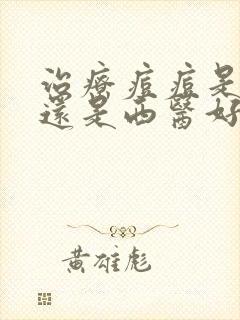 治療痘痘是
還是西醫好
黃雄彪